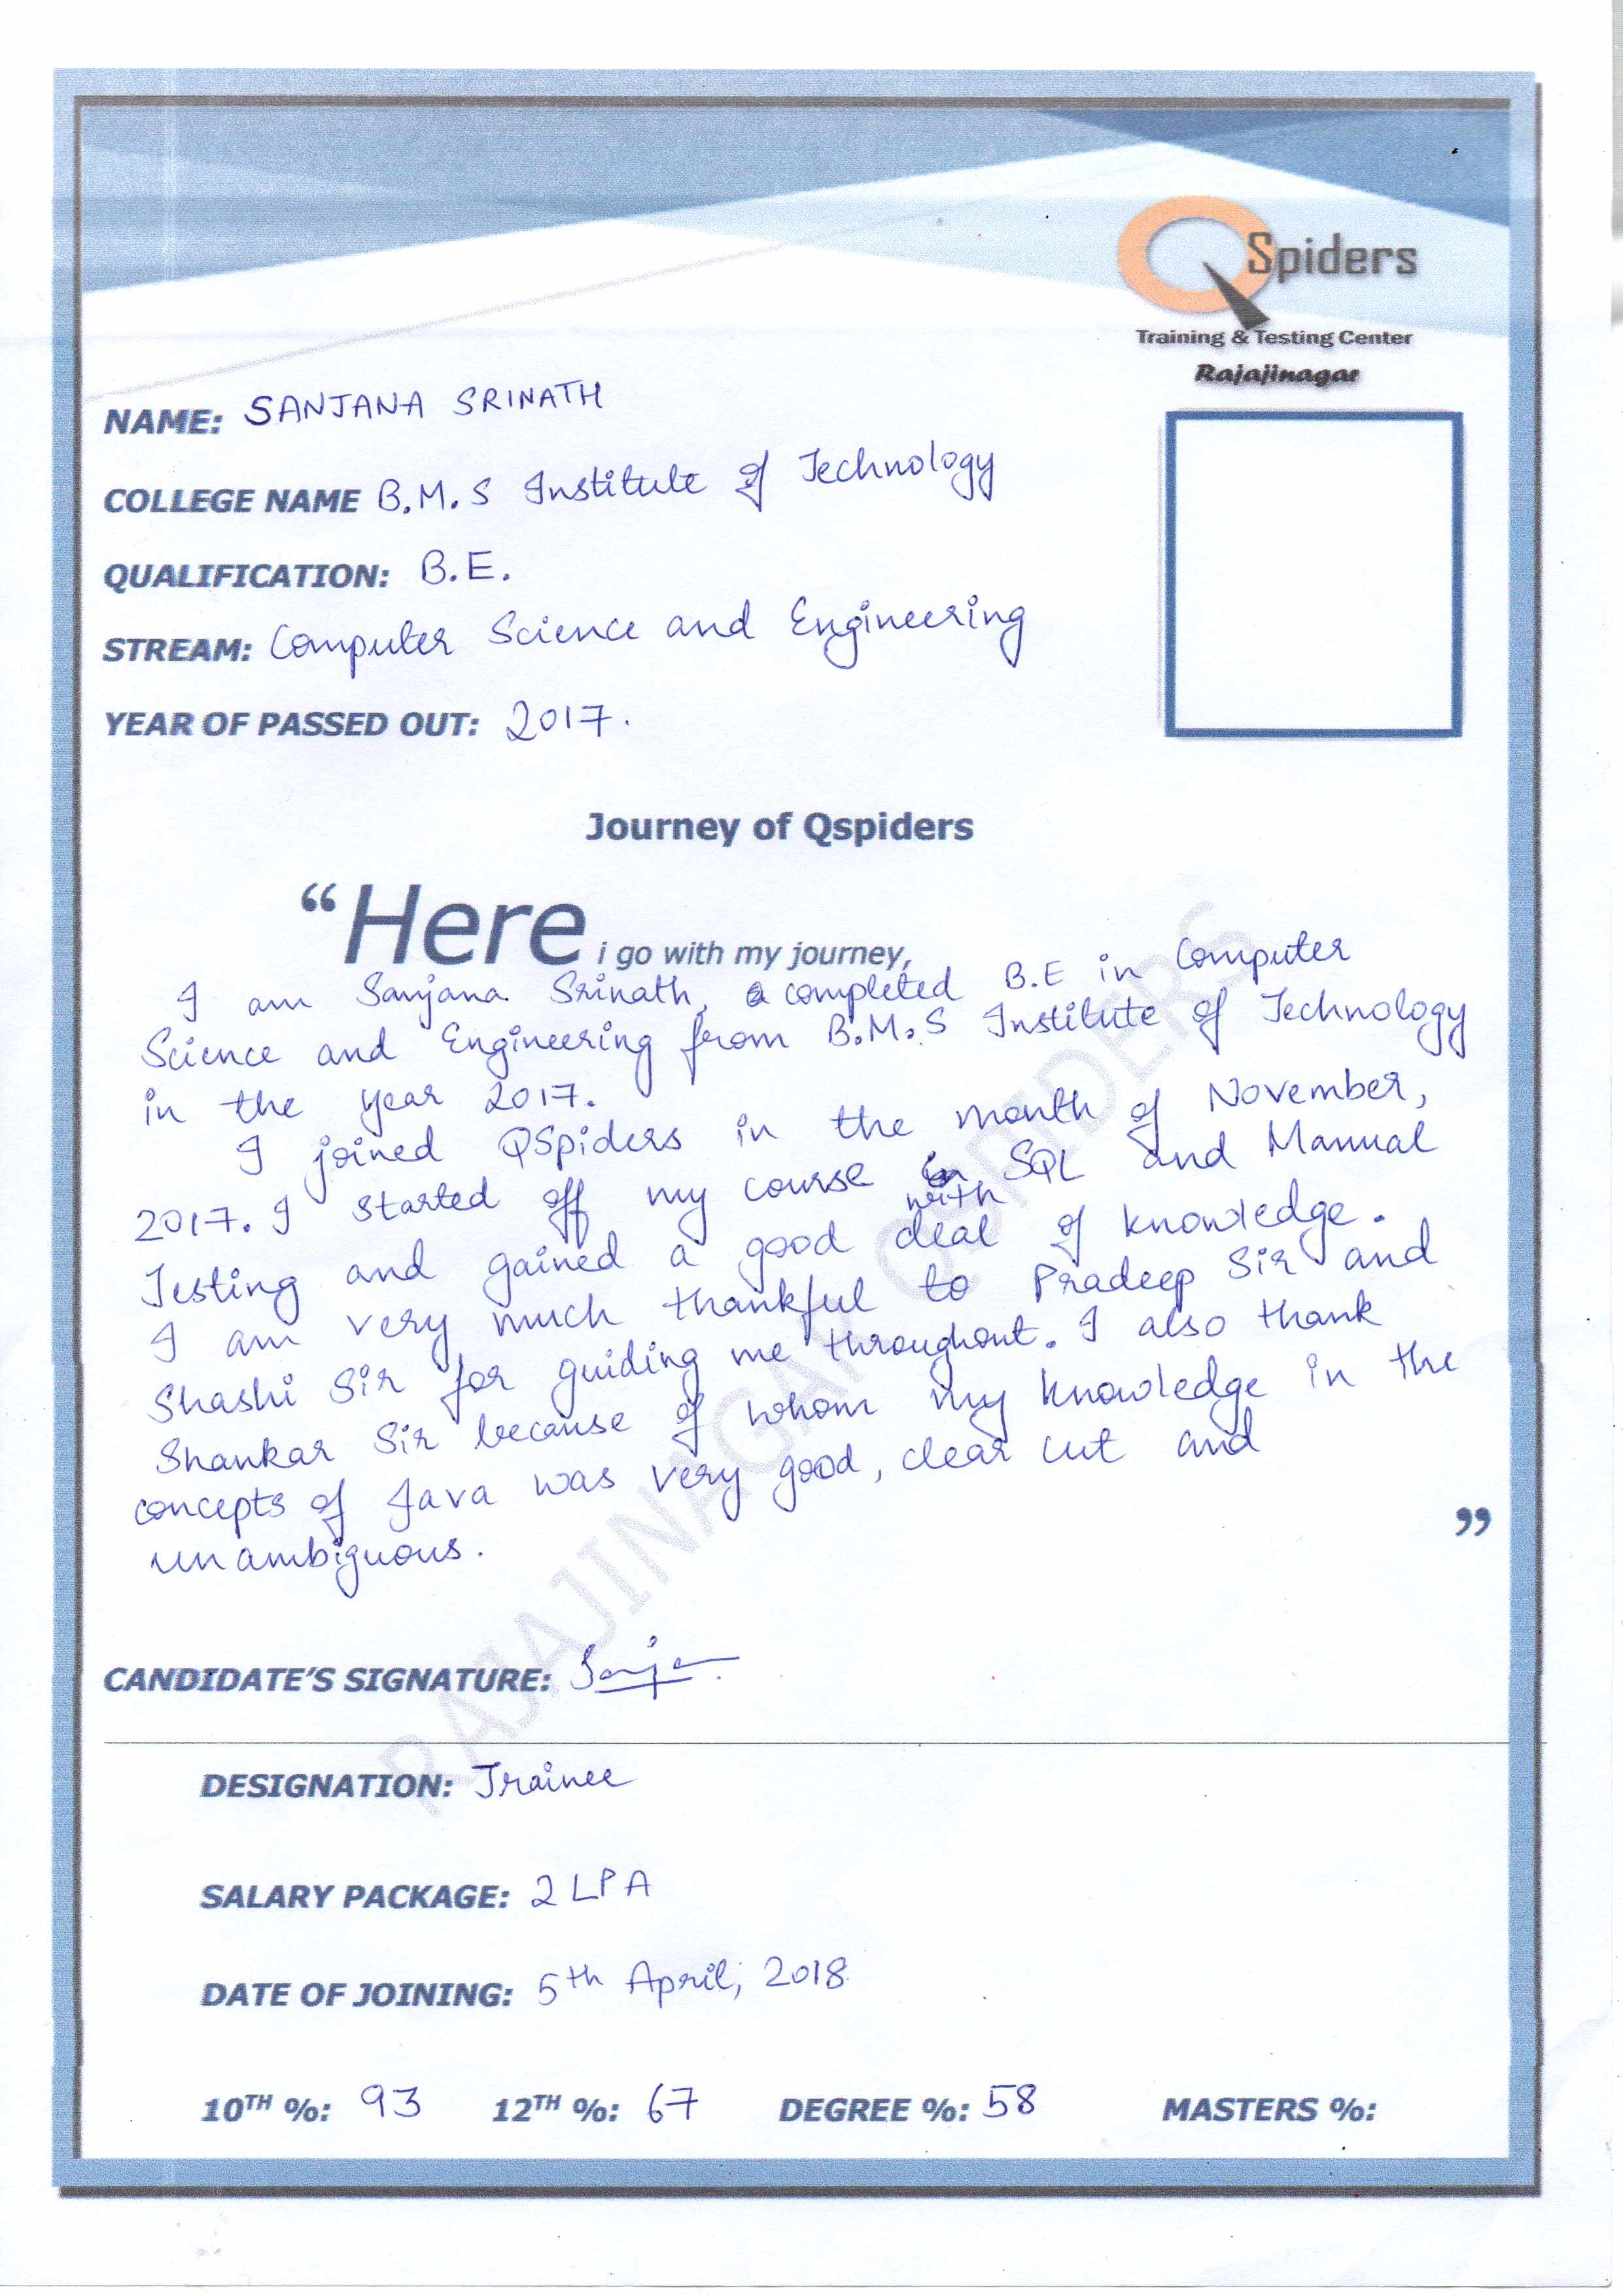 QSpiders
Training & Testing Center
Rajajinagar
NAME: SANJANA SRINATH
COLLEGE NAME B.M.S Institute of Technology
QUALIFICATION: B.E.
STREAM: Computer Science and Engineering
YEAR OF PASSED OUT: 2017.
Journey of Qspiders
“Here i go with my journey,
I am Sanjana Srinath, completed B.E in Computer
Science and Engineering from B.M.S Institute of Technology
in the year 2017.
I joined QSpiders in the month of November,
2017. I started off my course with SQL and Manual
Testing and gained a good deal of knowledge.
I am very much thankful to Pradeep Sir and
Shashi Sir for guiding me throughout. I also thank
Shankar Sir because of whom my knowledge in the
concepts of Java was very good, clear cut and
unambiguous.
”
RAJAJINAGAR QSPIDERS
CANDIDATE’S SIGNATURE: Sanjan
DESIGNATION: Trainee
SALARY PACKAGE: 2 LPA
DATE OF JOINING: 5th April, 2018
10TH %: 93 12TH %: 67 DEGREE %: 58 MASTERS %: